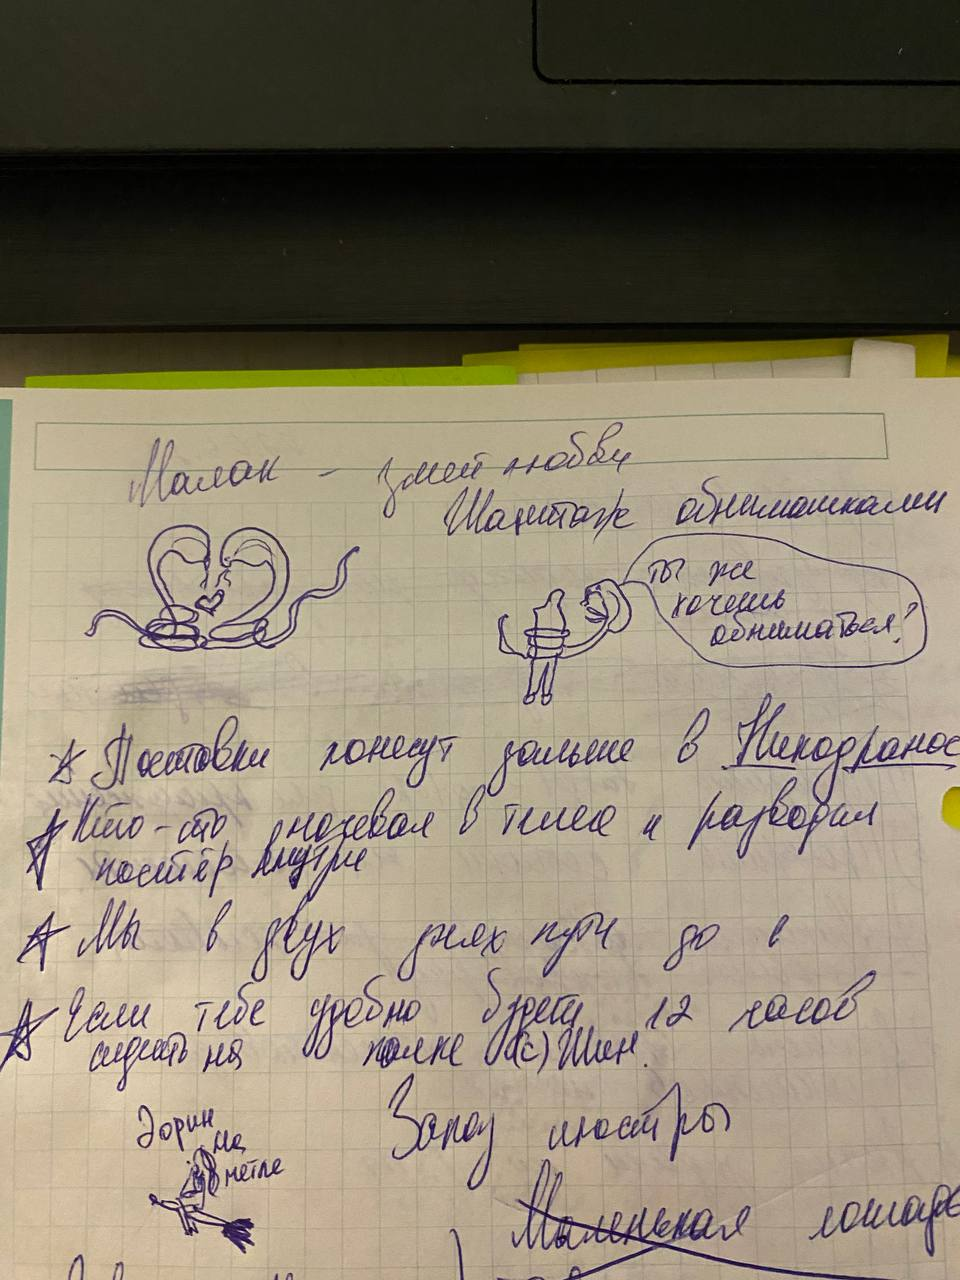 Малак – змей любви
Шантаж обнимашками
ты же
хочешь
обниматься!
Поставки понесут дальше в Никодранос
Кто-то ночевал в телеге и разводил
костёр внутри
Мы в двух днях пути до
Если тебе удобно будет 12 часов
сидеть на полке (с) Шин
Эорин
на
метле
Запоз люстры
Маленькая лошадь